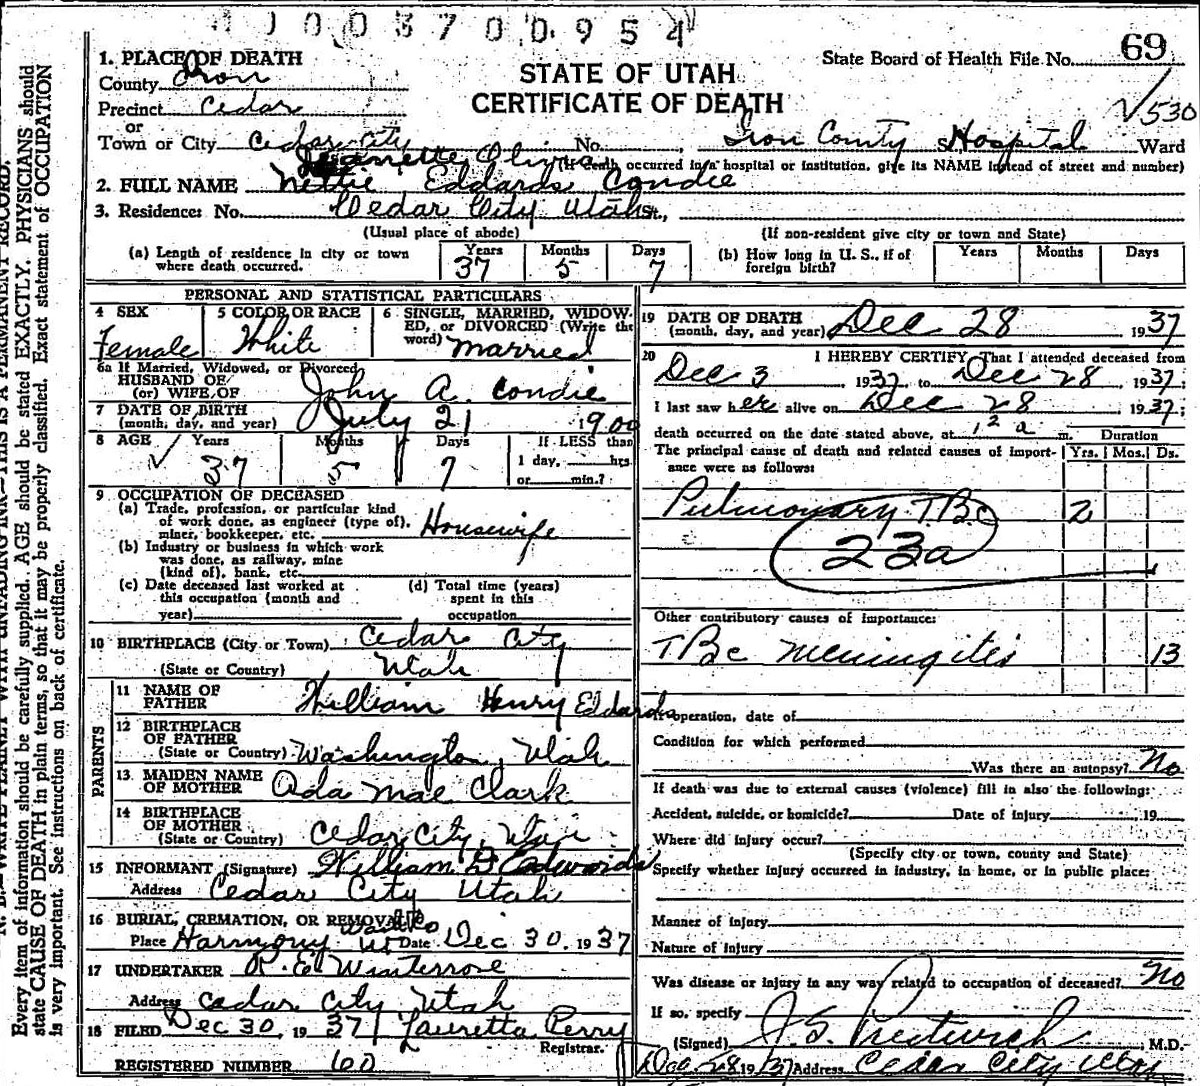 1003700954
69
1. PLACE OF DEATH
County Iron
Precinct Cedar
or
Town or City Cedar City No. Iron County Hospital Ward
STATE OF UTAH
CERTIFICATE OF DEATH
State Board of Health File No.
√530
(If death occurred in a hospital or institution, give its NAME instead of street and number)
2. FULL NAME Nettie Eddards Condie
3. Residence: No. Cedar City Utah St.,
(Usual place of abode)
(If non-resident give city or town and State)
(a) Length of residence in city or town where death occurred. Years 37 Months 5 Days 7
(b) How long in U. S., if of foreign birth? Years Months Days
PERSONAL AND STATISTICAL PARTICULARS
4 SEX Female
5 COLOR OR RACE White
6 SINGLE, MARRIED, WIDOWED, or DIVORCED (Write the word) Married
6a If Married, Widowed, or Divorced
HUSBAND OF
(or) WIFE OF John A. Condie
7 DATE OF BIRTH
(month, day, and year) July 21 1900
8 AGE Years 37 Months 5 Days 7
If LESS than
1 day, hrs
or min.?
9 OCCUPATION OF DECEASED
(a) Trade, profession, or particular kind
of work done, as engineer (type of),
miner, bookkeeper, etc. Housewife
(b) Industry or business in which work
was done, as railway, mine
(kind of), bank, etc.
(c) Date deceased last worked at
this occupation (month and
year)
(d) Total time (years)
spent in this
occupation
10 BIRTHPLACE (City or Town) Cedar City
(State or Country) Utah
PARENTS
11 NAME OF
FATHER William Henry Eddards
12 BIRTHPLACE
OF FATHER
(State or Country) Washington, Utah
13. MAIDEN NAME
OF MOTHER Ada Mae Clark
14 BIRTHPLACE
OF MOTHER
(State or Country) Cedar City, Utah
15 INFORMANT (Signature) William D Edwards
Address Cedar City Utah
16 BURIAL, CREMATION, OR REMOVAL
Place Harmony Ut Date Dec 30. 1937
17 UNDERTAKER
Address Cedar City Utah
18 FILED Dec 30, 1937 Lauretta Perry
Registrar.
REGISTERED NUMBER 60
19 DATE OF DEATH
(month, day, and year) Dec 28 1937
20 I HEREBY CERTIFY, That I attended deceased from
Dec 3 1937, to Dec 28, 1937;
I last saw her alive on Dec 28 1937;
death occurred on the date stated above, at 12 a m. Duration
The principal cause of death and related causes of importance were as follows: Yrs. Mos. Ds.
Pulmonary T.B.c 2
23a
Other contributory causes of importance:
TBc Meningitis 13
If operation, date of
Condition for which performed
Was there an autopsy? No
If death was due to external causes (violence) fill in also the following:
Accident, suicide, or homicide? Date of injury 19
Where did injury occur?
(Specify city or town, county and State)
Specify whether injury occurred in industry, in home, or in public place:
Manner of injury
Nature of injury
Was disease or injury in any way related to occupation of deceased? No
If so, specify
(Signed) J. S. Prestwich, M.D.
Dec 28 1937 Address Cedar City Utah
Every item of information should be carefully supplied. AGE should be stated EXACTLY. PHYSICIANS should
state CAUSE OF DEATH in plain terms, so that it may be properly classified. Exact statement of OCCUPATION
is very important. See instructions on back of certificate.